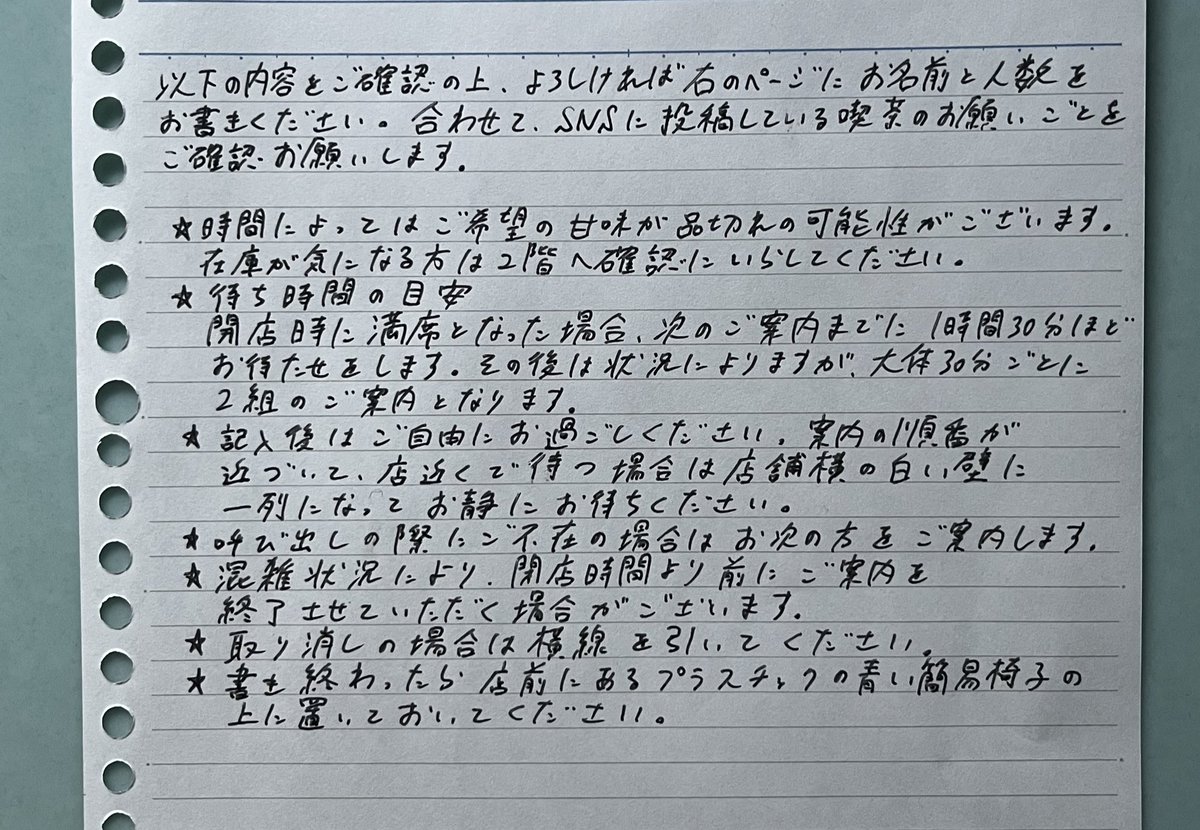 以下の内容をご確認の上、よろしければ右のページにお名前と人数を
お書きください。合わせて、SNSに投稿している喫茶のお願いごとを
ご確認お願いします。
★時間によってはご希望の甘味が品切れの可能性がございます。
在庫が気になる方は2階へ確認にいらしてください。
★待ち時間の目安
開店時に満席となった場合、次のご案内までに1時間30分ほど
お待たせをします。その後は状況によりますが、大体30分ごとに
2組のご案内となります。
★記入後はご自由にお過ごしください。案内の順番が
近づいて、店近くで待つ場合は店舗横の白い壁に
一列になってお静にお待ちください。
★呼び出しの際にご不在の場合はお次の方をご案内します。
★混雑状況により、閉店時間より前にご案内を
終了させていただく場合がございます。
★取り消しの場合は横線を引いてください。
★書き終わったら店前にあるプラスチックの青い簡易椅子の
上に置いておいてください。